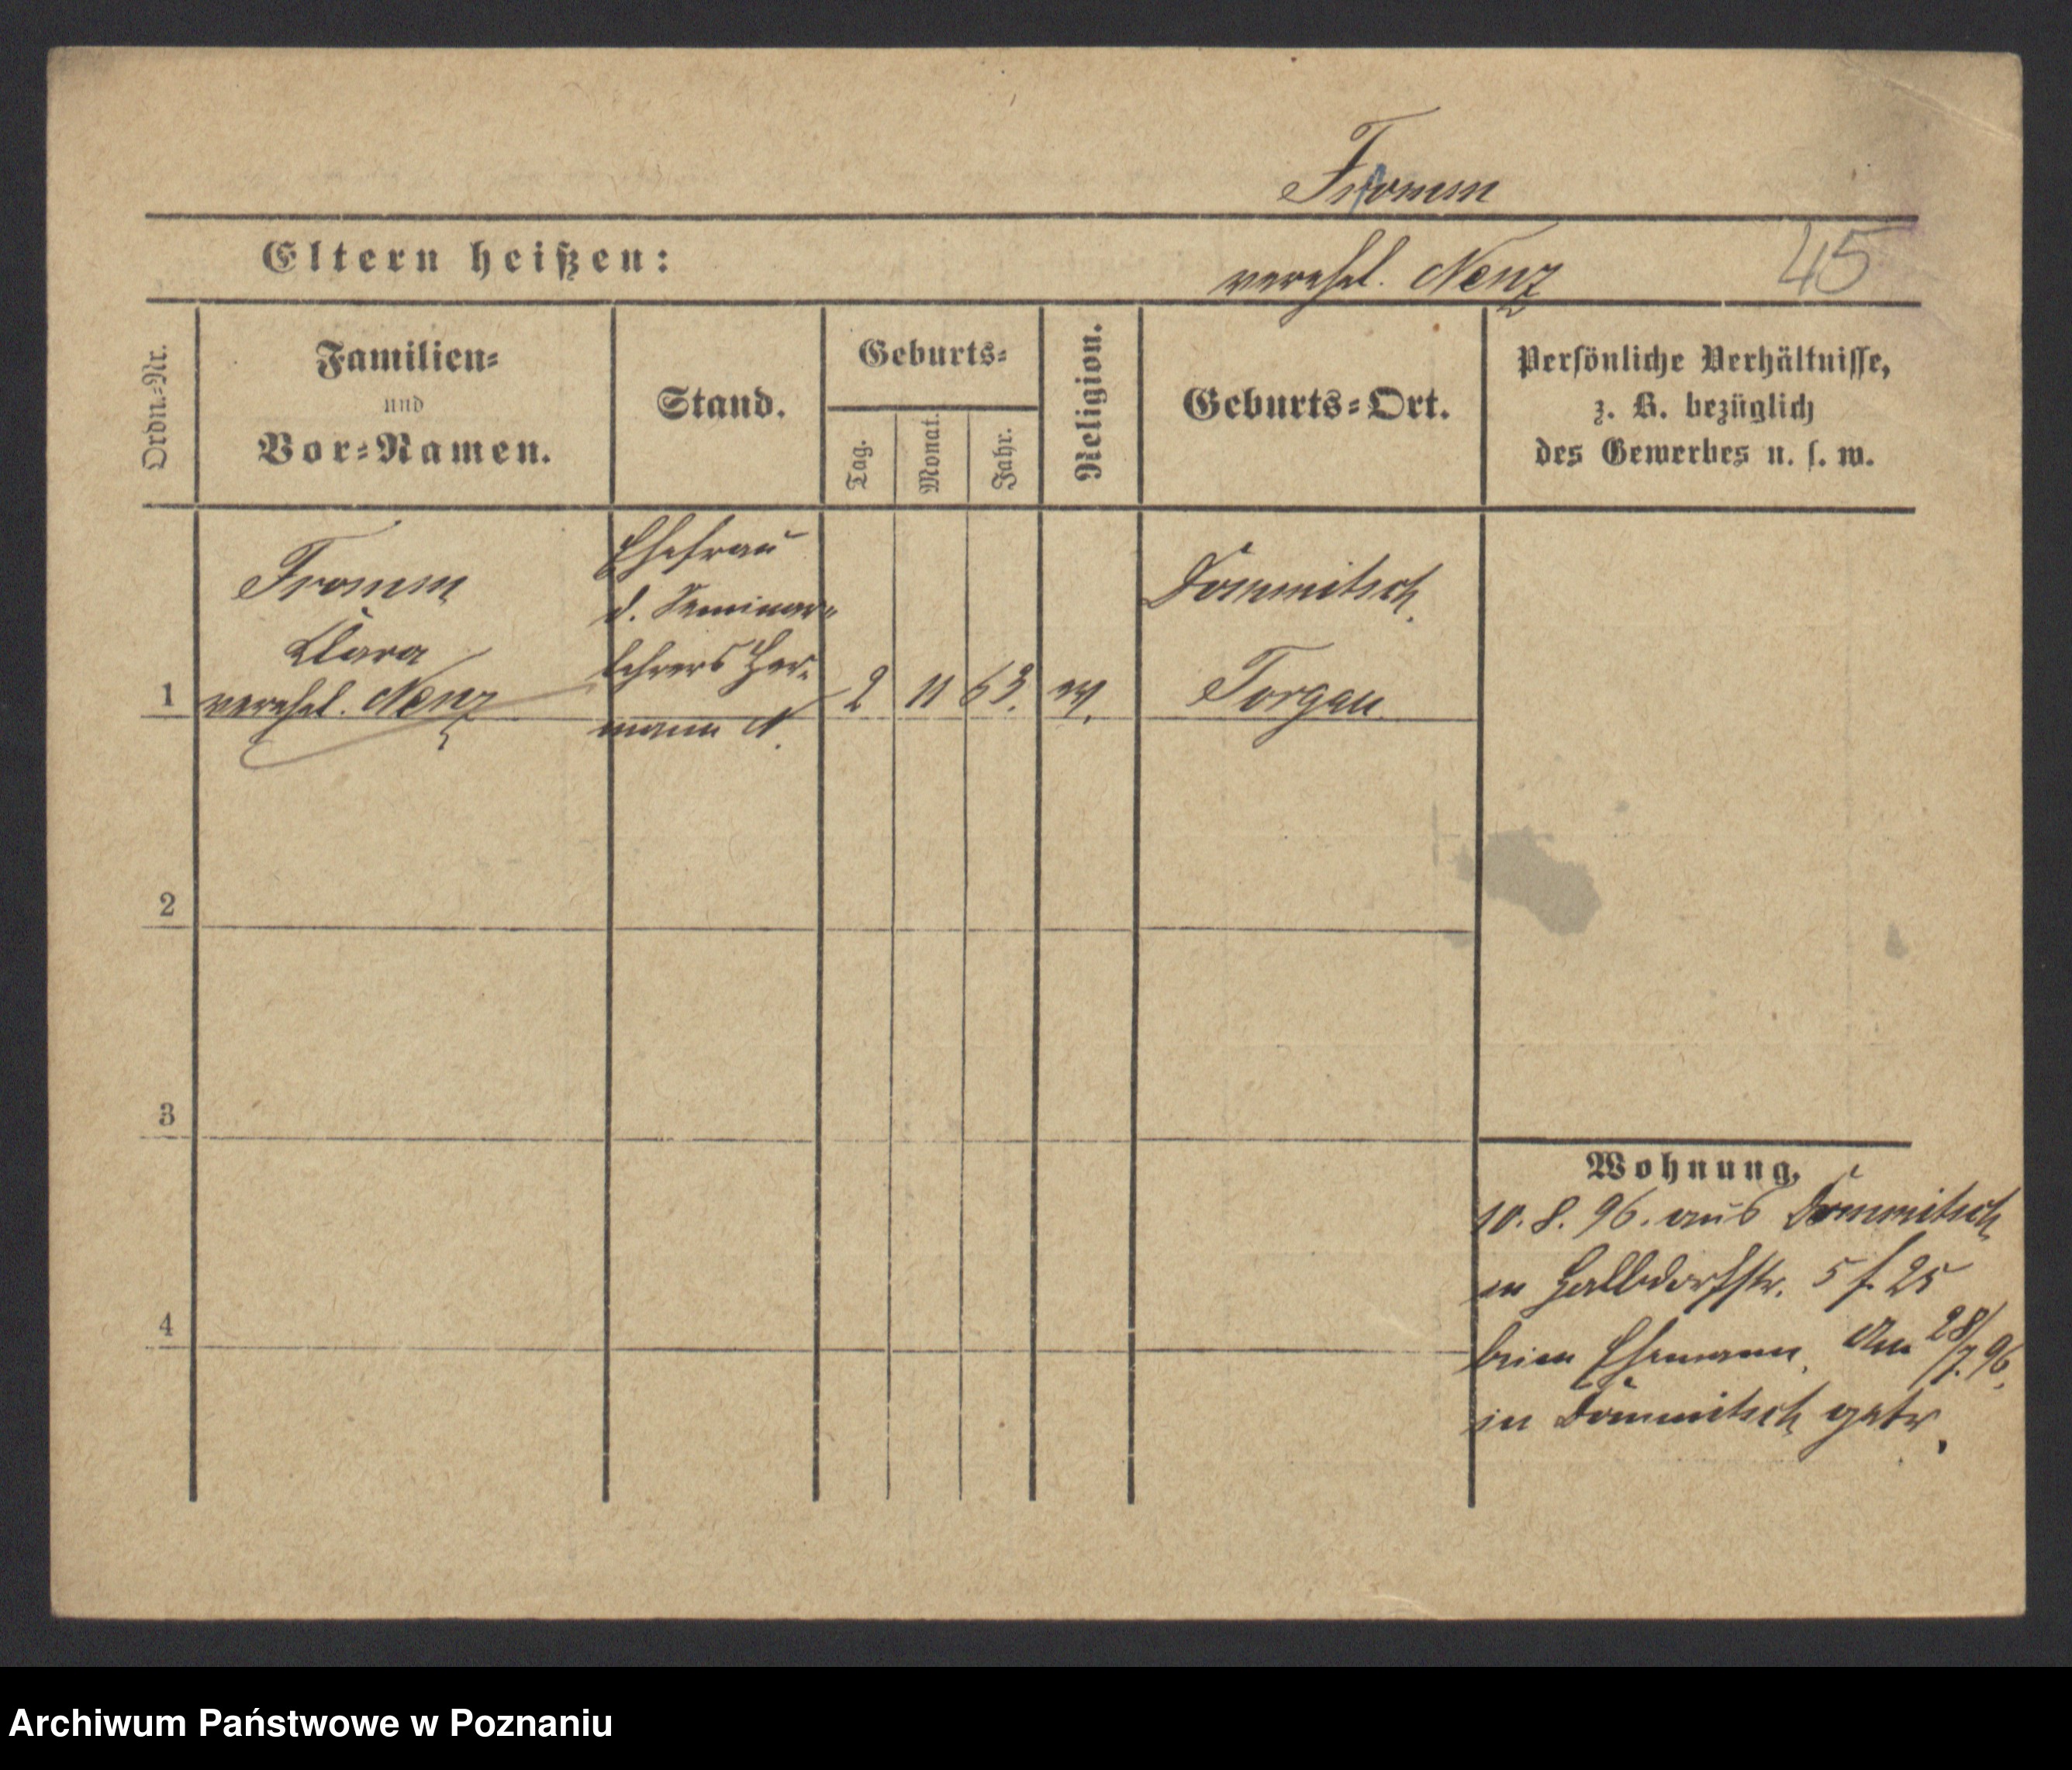 Fromm
Eltern heißen:
verehel. Nenz
45
Ordn.-Nr.
Familien-
und
Vor-Namen.
Stand.
Geburts-
Tag.
Monat.
Jahr.
Religion.
Geburts-Ort.
Persönliche Verhältnisse,
z. B. bezüglich
des Gewerbes u. s. w.
1
Fromm
Clara
verehel. Nenz
Ehefrau
d. Seminar-
lehrers Her-
mann N.
2
11
63.
ev.
Dommitsch
Torgau
2
3
4
Wohnung.
10. 8. 96. aus Dommitsch
in Halbdorfstr. 5 f. 25
beim Ehemann. Am 28/7. 96.
in Dommitsch getr.
Archiwum Państwowe w Poznaniu